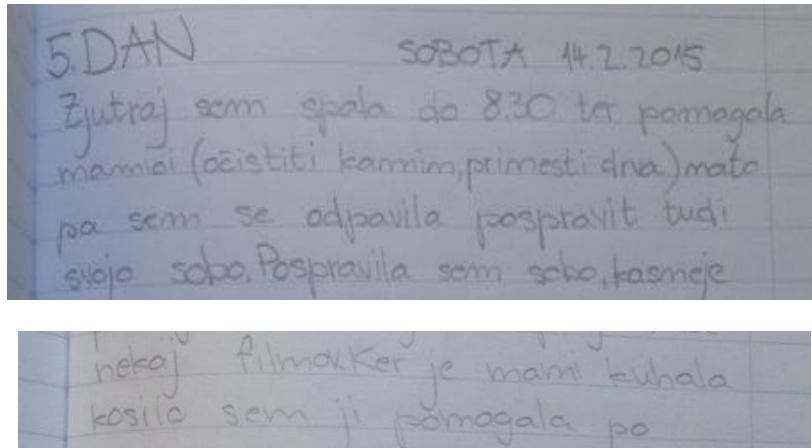 5. DAN SOBOTA 14.2.2015
Zjutraj sem spala do 8.30 ter pomagala
mamici (očistiti kammim, primesti drva) mato
pa sem se odpavila pospravit tudi
svojo sobo. Pospravila sem sobo, kasmeje
nekaj filmov. Ker je mami kuhala
kosilo sem ji pomagala po